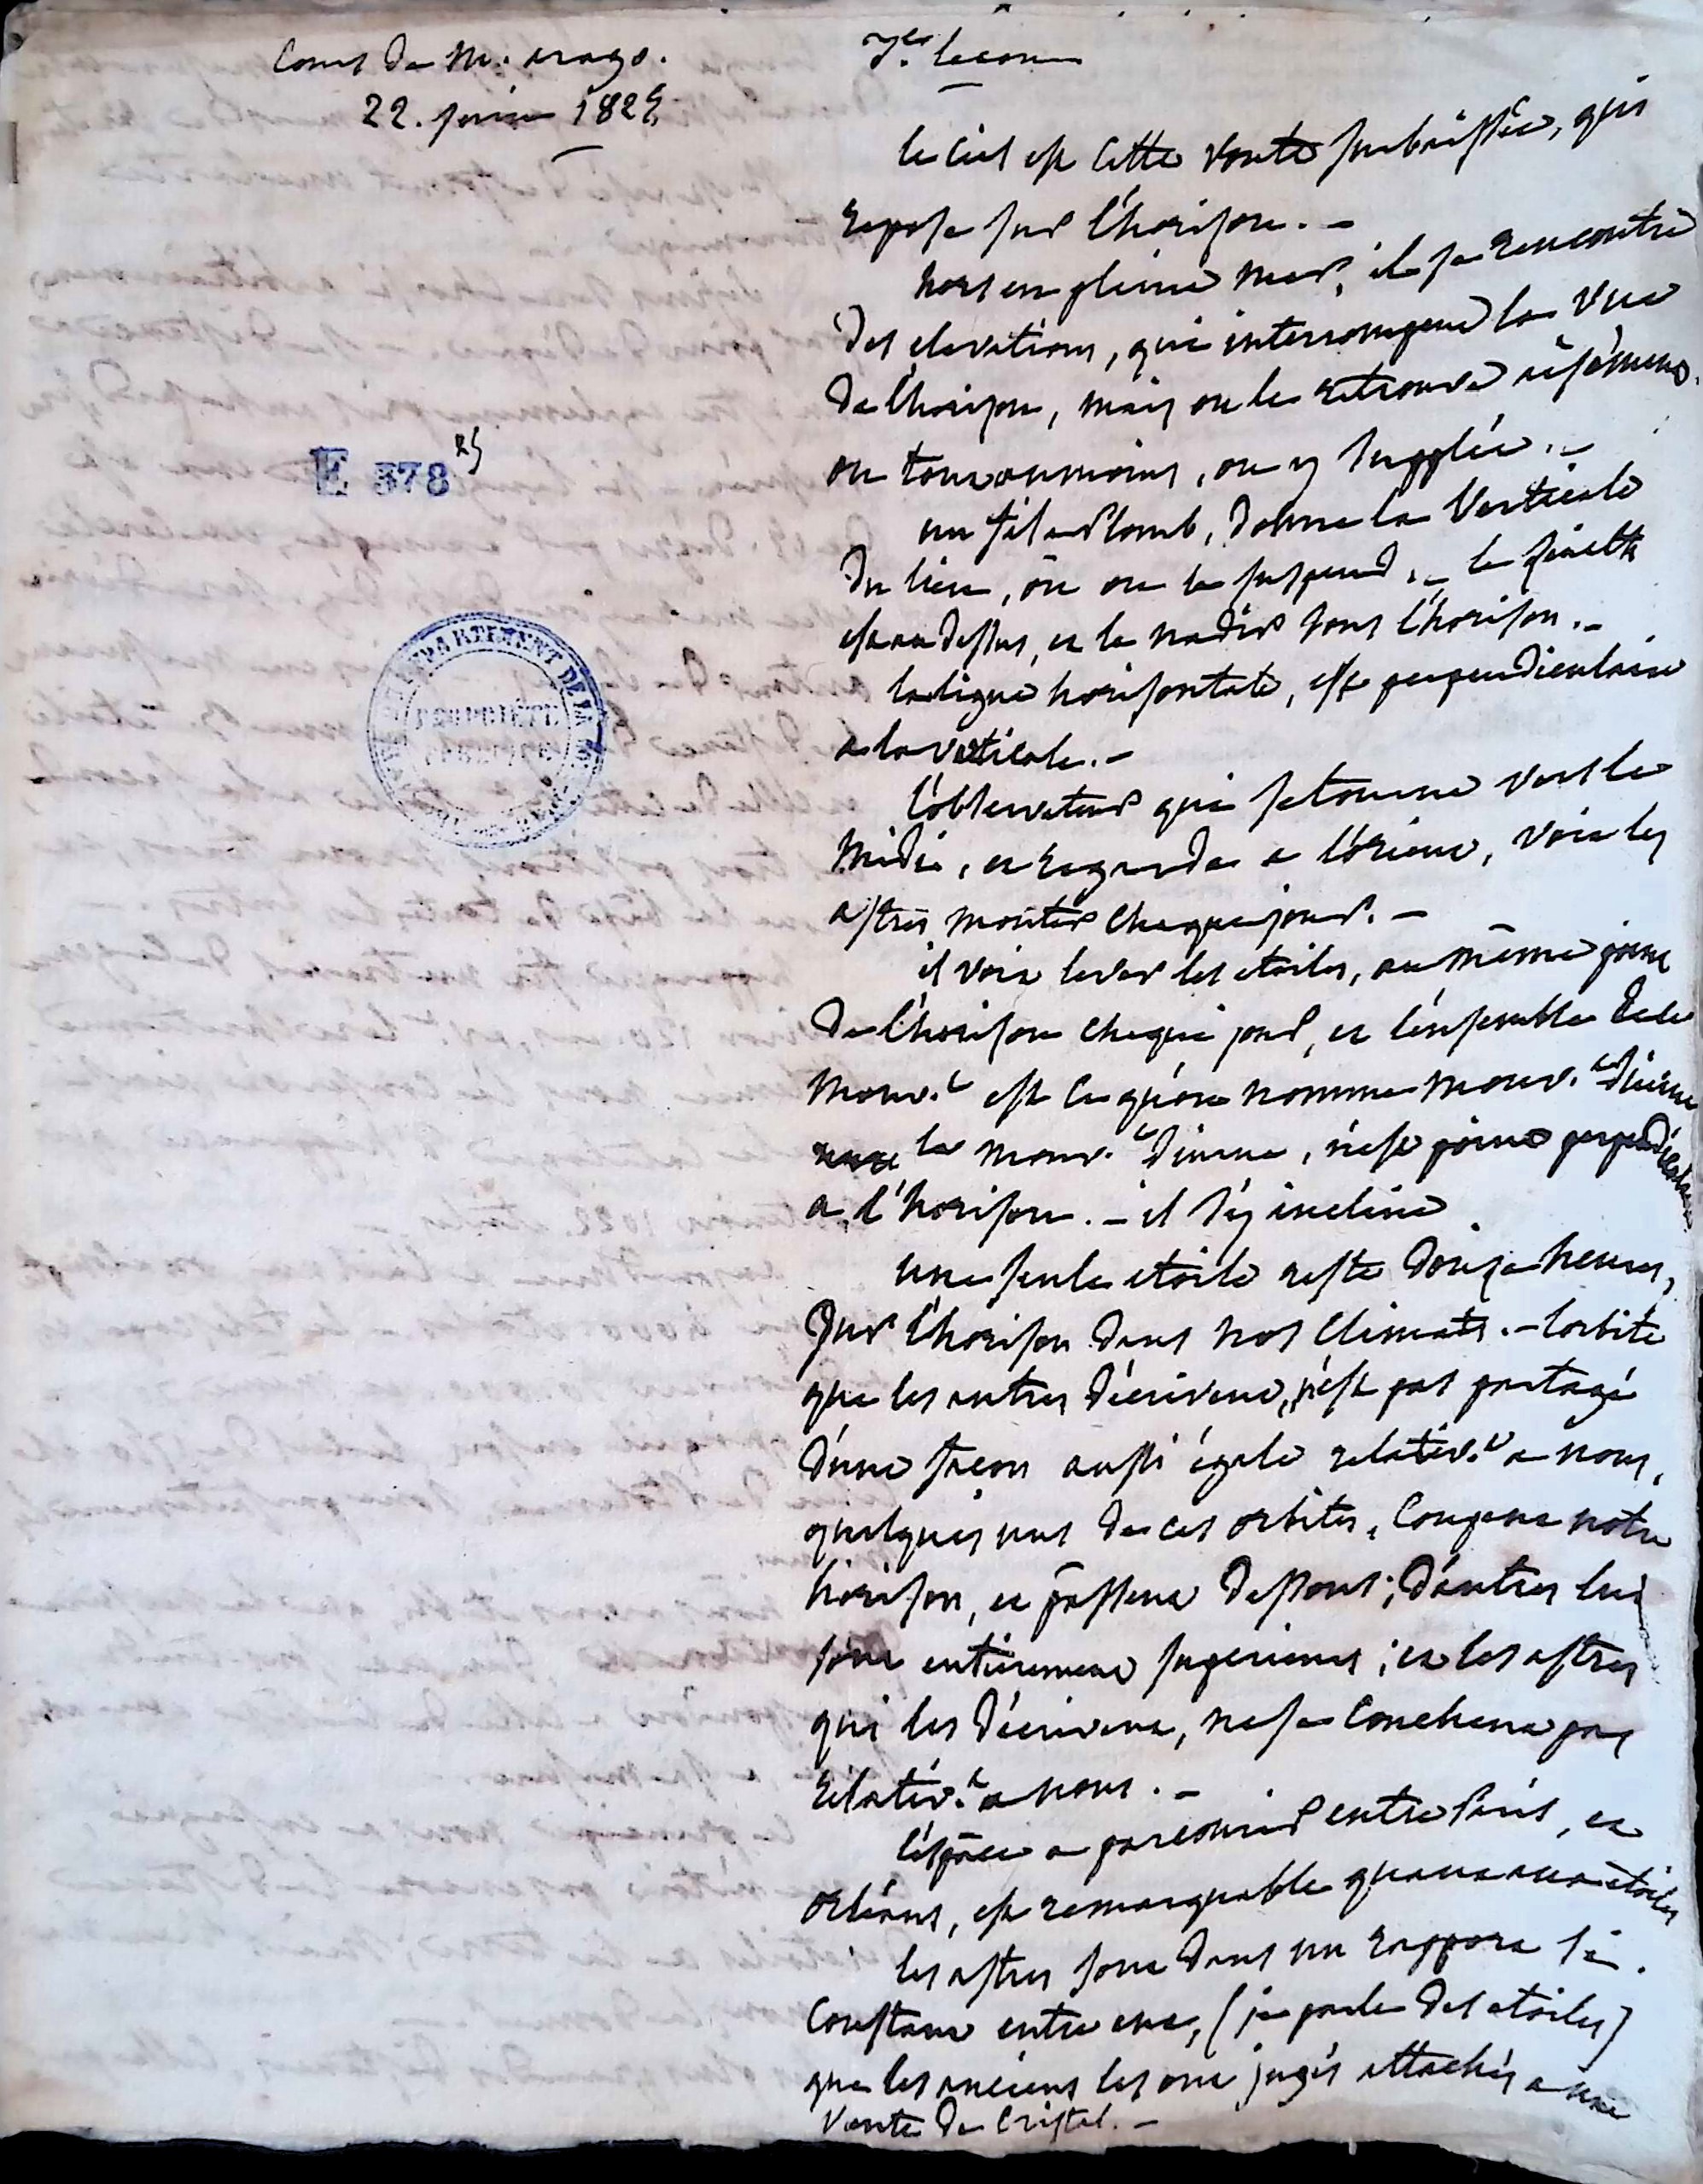 Cours de M. arago.
22. juin 1825
E 378 25
DÉPARTEMENT DE LA
PROPRIÉTÉ
PUBLIQUE
1ere lecon
le ciel est cette voute surbaissée, qui
repose sur l'horison. -
hors en pleine mer, il se rencontre
des elevations, qui interrompent la vue
de l'horison, mais on le retrouve aisément.
ou tout aumoins, on y supplée. -
un fil a plomb, donne la verticale
du lieu, ou on le suspend. - le zénith
est au dessus, et le nadir sous l'horison. -
la ligne horisontale, est perpendiculaire
a la verticale. -
l'observateur qui se tourne vers le
midi, et regarde a l'orient, voit les
astres monter chaque jour. -
il voit lever les etoiles, au même point
de l'horison chaque jour, et l'ensemble de ce
mouv.t est ce qu'on nomme mouv.t diurne
le mouv.t diurne, n'est point perpendiculaire
a l'horison. - il s'y incline
une seule etoile reste douze heures,
sur l'horison dans nos climats. - l'orbite
que les autres décrivent, n'est pas partagé
d'une facon aussi égale relativ.t a nous,
quelques uns de ces orbites, coupent notre
horison, et passent dessous; d'autres lui
sont entierement superieurs; et les astres
qui les décrivent, ne se couchent pas
relativ.t a nous. -
l'éspace a parcourir entre Paris, et
orléans, est remarquable quant aux étoiles
les astres sont dans un rapport si
constant entre eux, (je parle des etoiles)
que les anciens les ont jugés attachés a une
voute de cristal. -